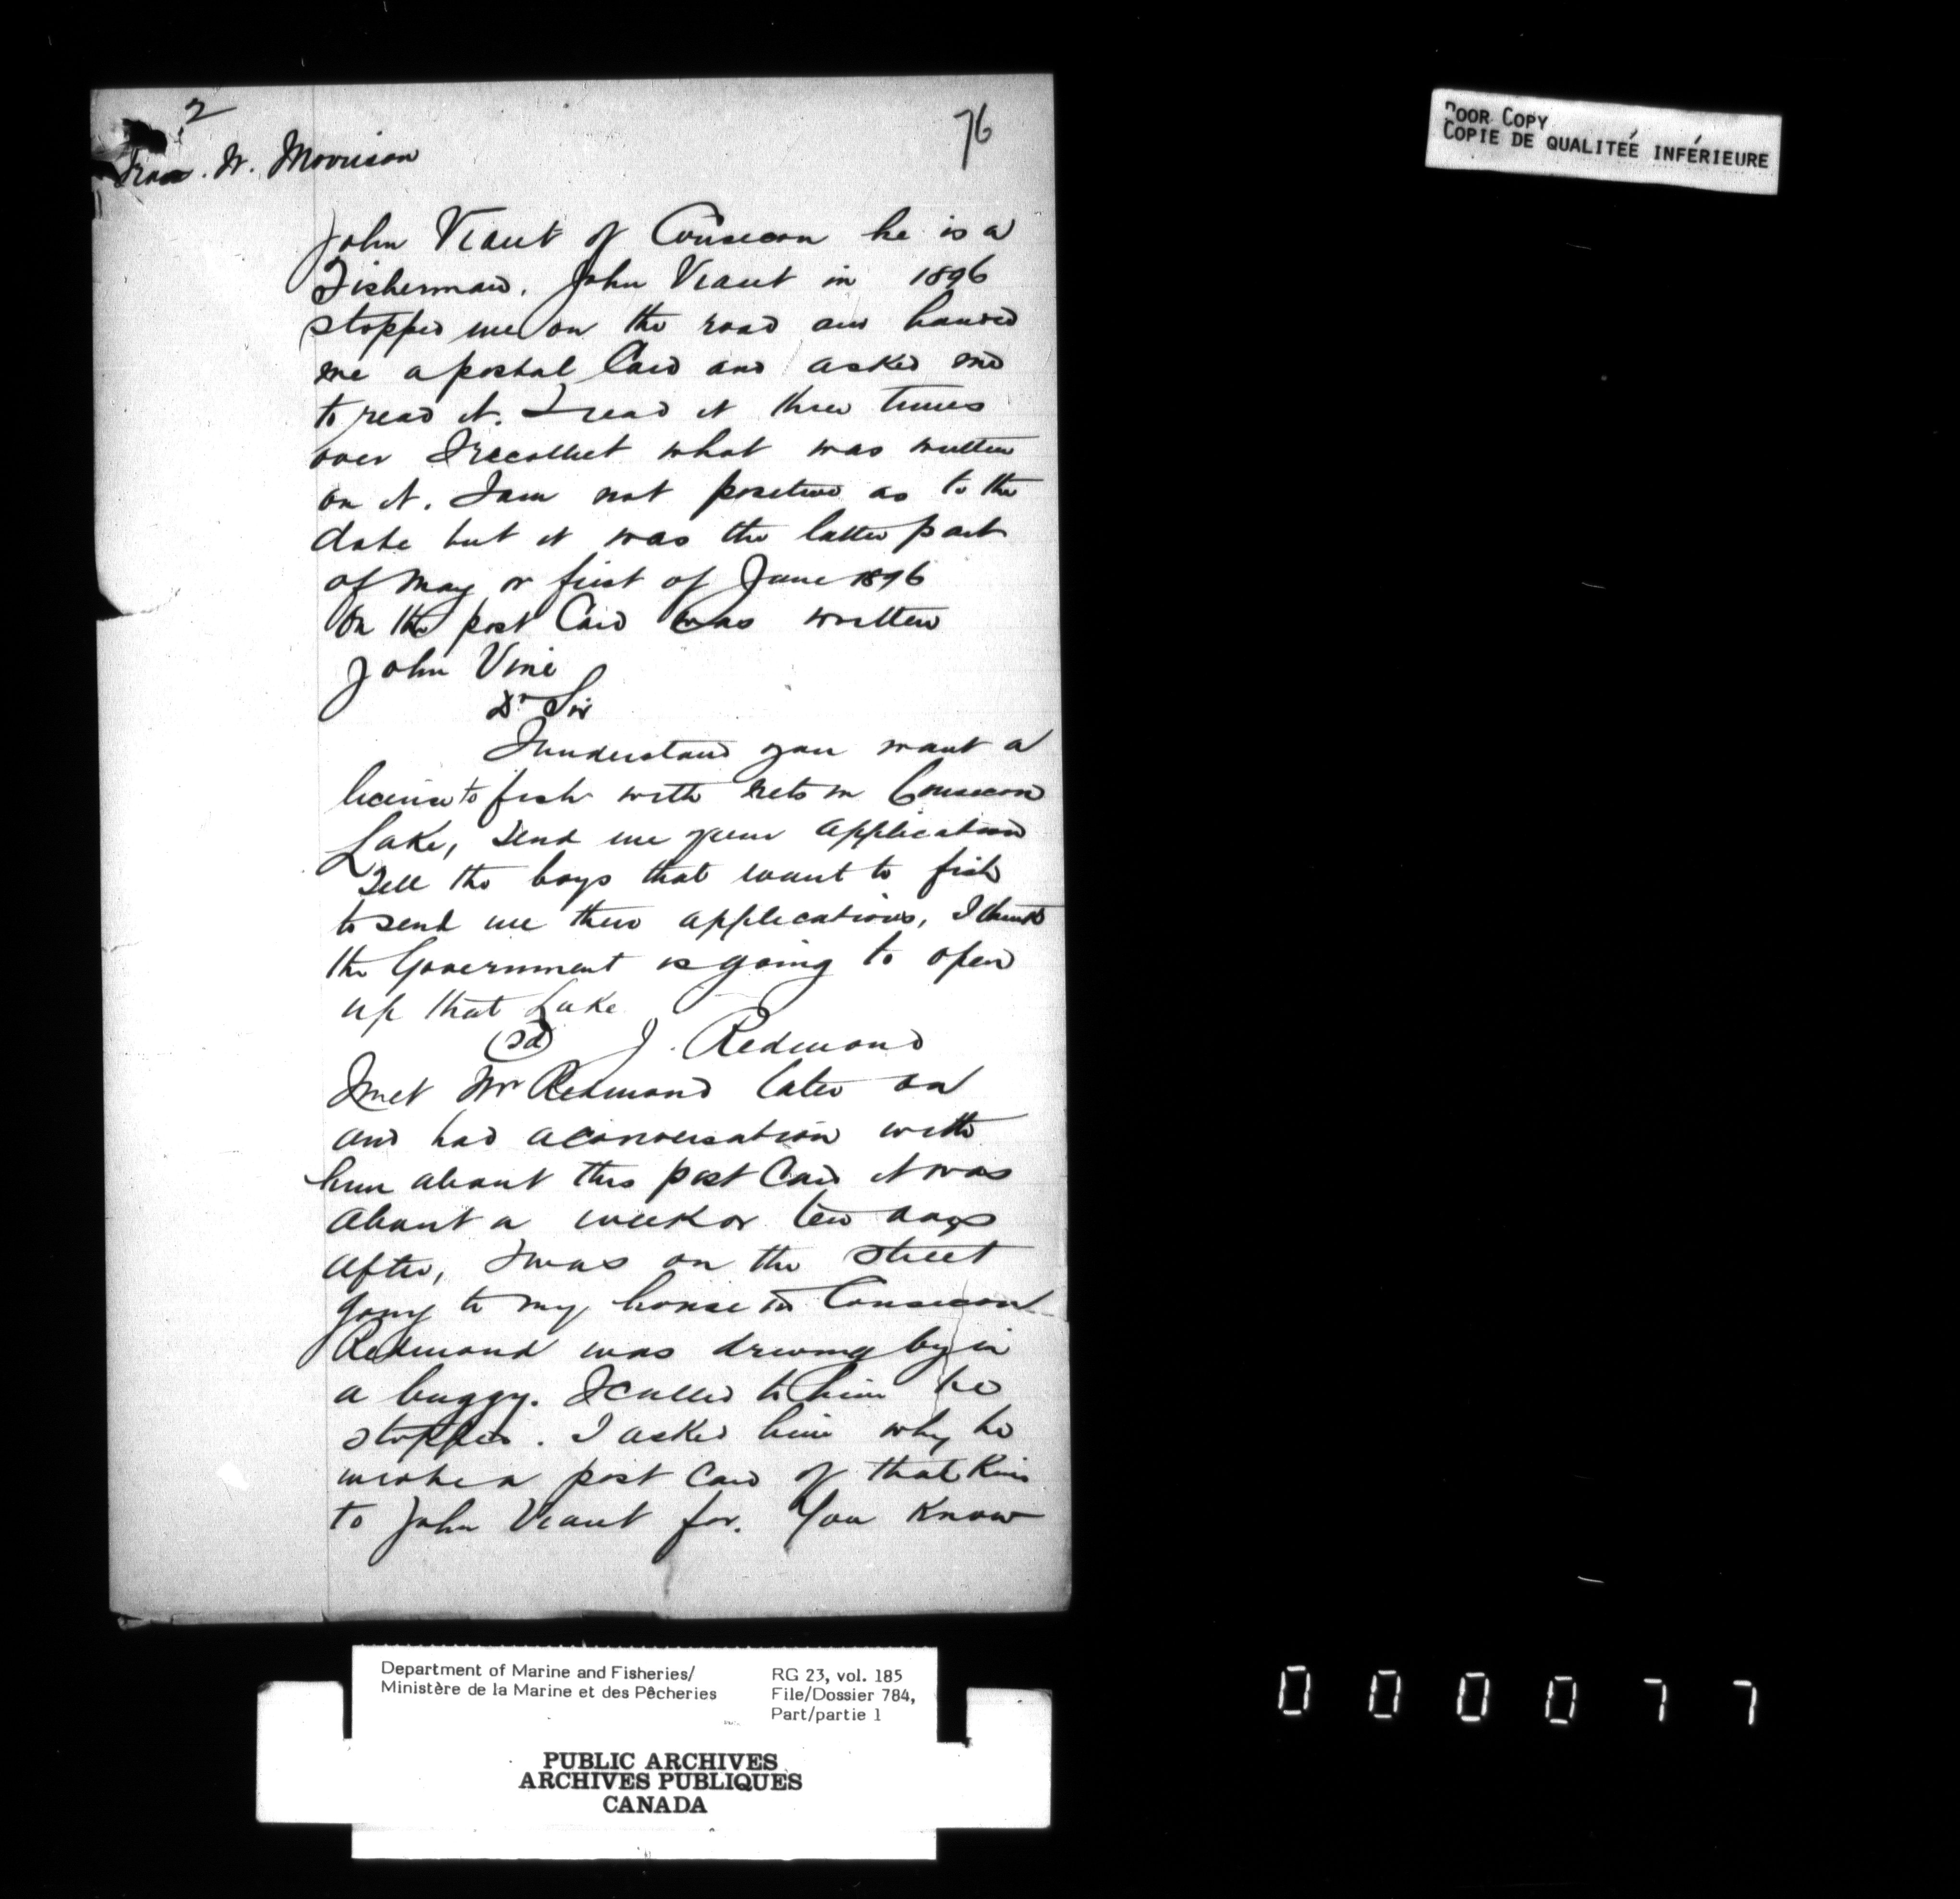 2
76
W. Morrison
John Viant of Consecon he is a
Fisherman. John Viant in 1896
stopped me on the road and handed
me a postal Card and asked me
to read it. I read it three times
over I recollect what was written
on it. I am not positive as to the
date but it was the latter part
of May or first of June 1896
On the post Card was written
John Vine
Dr Sir
I understand you want a
license to fish with nets in Consecon
Lake, Send me your application
Tell the boys that want to fish
to send me their applications, I think
the Government is going to open
up that Lake
(sd) J. Redmond
I met Mr Redmond later on
and had a conversation with
him about this post Card it was
about a week or ten days
after, I was on the street
going to my house in Consecon
Redmond was driving by in
a buggy. I called to him he
stopped. I asked him why he
wrote a post card of that kind
to John Viant for. You know
POOR COPY
COPIE DE QUALITÉE INFÉRIEURE
Department of Marine and Fisheries/
Ministère de la Marine et des Pêcheries
RG 23, vol. 185
File/Dossier 784,
Part/partie 1
PUBLIC ARCHIVES
ARCHIVES PUBLIQUES
CANADA
000077